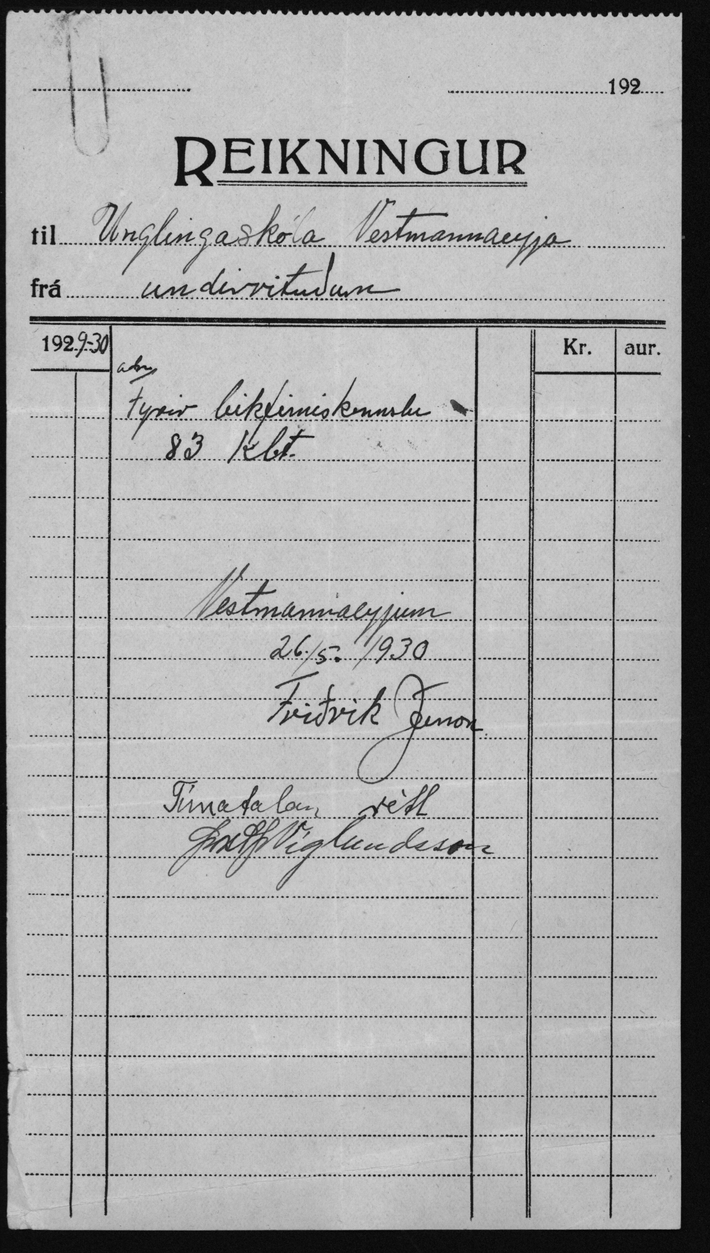 192
REIKNINGUR
til Unglingaskóla Vestmannaeyja
frá undirrituðum
1929-30
Kr. aur.
Fyrir leikfimiskennslu
83 klst.
Vestmannaeyjum
26/5. 1930
Friðrik Jesson
Tímatalan rétt
Víglundsson